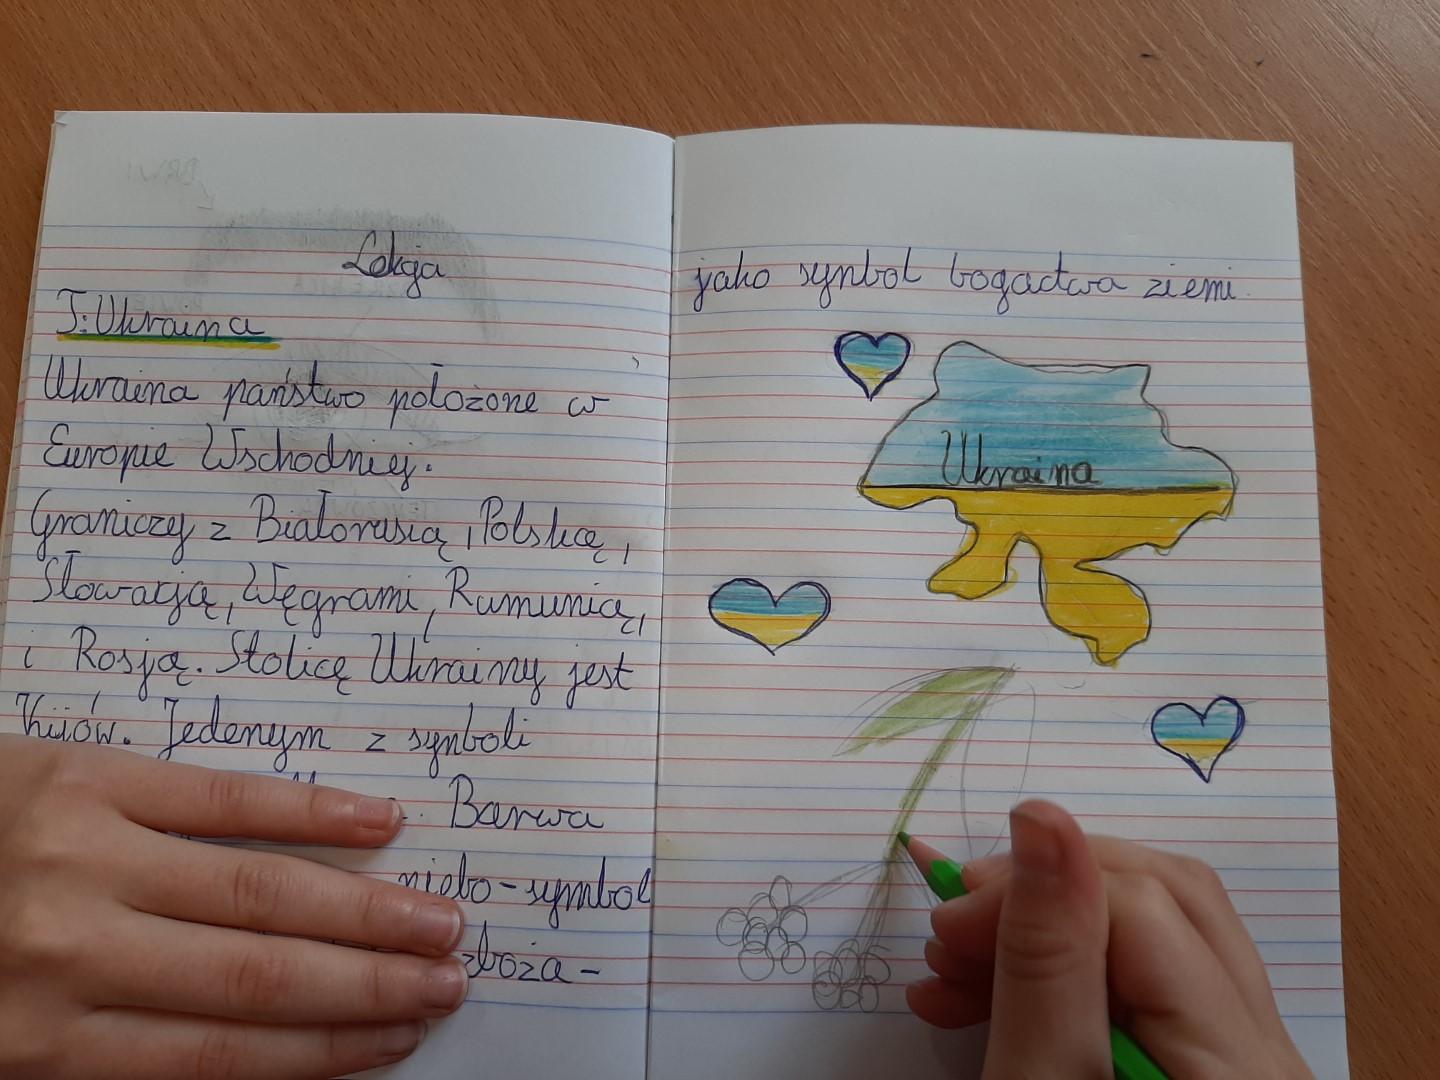 Lekcja
T: Ukraina
Ukraina państwo położone w
Europie Wschodniej.
Graniczy z Białorusią, Polską,
Słowacją, Węgrami, Rumunią,
i Rosją. Stolicę Ukrainy jest
Kijów. Jedenym z symboli
Barwa
niebo - symbol
zboża -
jako symbol bogactwa ziemi.
Ukraina